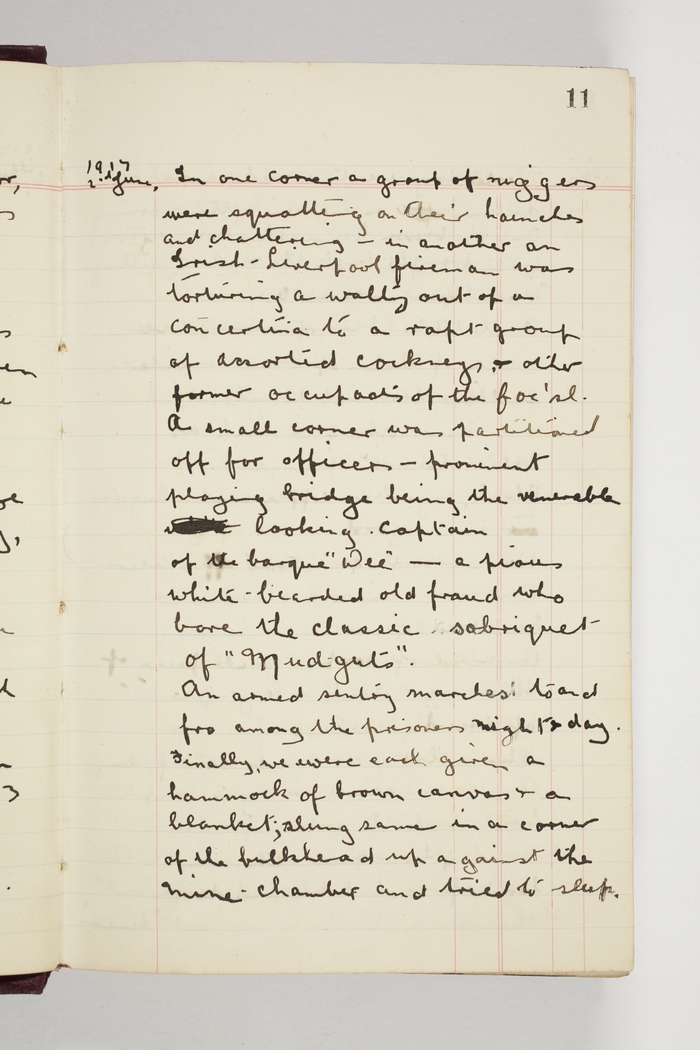 11
1917
2nd June, In one corner a group of niggers
were squatting on their haunches
and chattering – in another an
Irish-Liverpool fireman was
torturing a waltz out of a
concertina to a rapt group
of assorted cockneys & other
former occupants of the foc'sl.
A small corner was partitioned
off for officers – prominent
playing bridge being the venerable
looking captain
of the barque "Dee" — a pious
white-bearded old fraud who
bore the classic sobriquet
of "Mudguts".
An armed sentry marches to and
fro among the prisoners night & day.
Finally, we were each given a
hammock of brown canvas & a
blanket; slung same in a corner
of the bulkhead up against the
mine-chamber and tried to sleep.